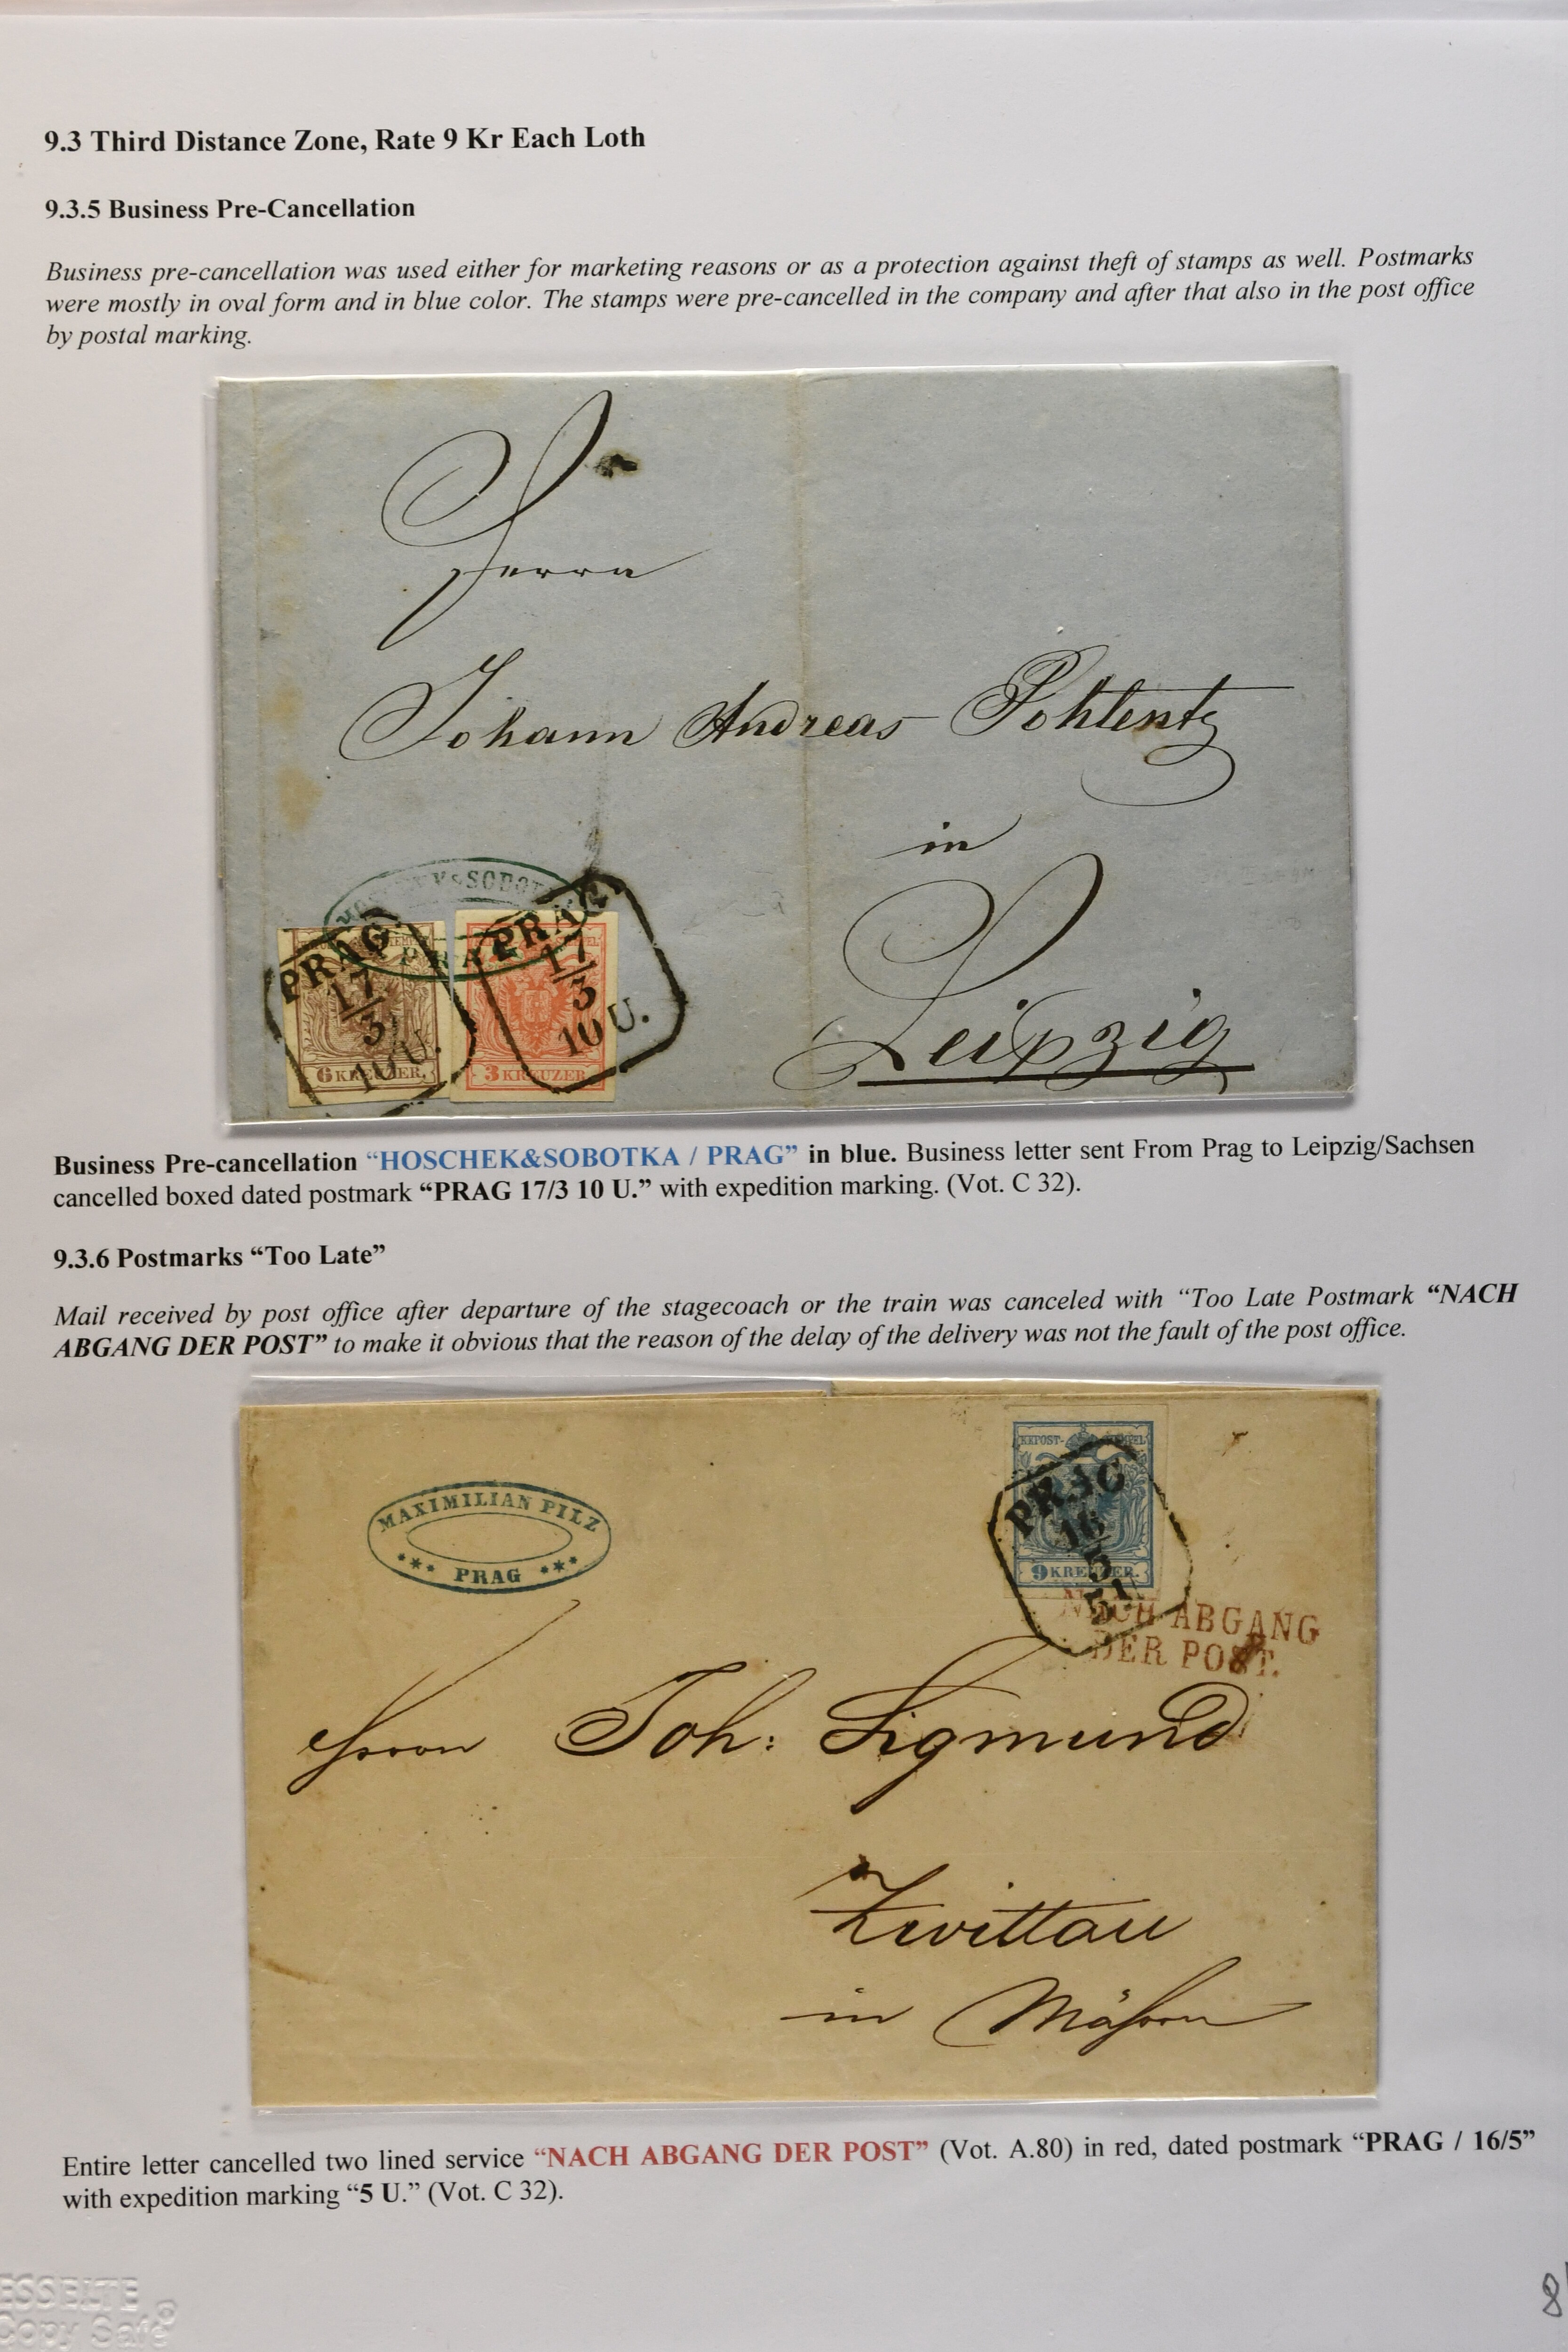 9.3 Third Distance Zone, Rate 9 Kr Each Loth
9.3.5 Business Pre-Cancellation
Business pre-cancellation was used either for marketing reasons or as a protection against theft of stamps as well. Postmarks
were mostly in oval form and in blue color. The stamps were pre-cancelled in the company and after that also in the post office
by postal marking.
Herrn
Johann Andreas Pohlentz
in
Leipzig
PRAG
PRAG
17/3
10 U.
6 KREUZER.
PRAG
17/3
10 U.
3 KREUZER
Business Pre-cancellation “HOSCHEK&SOBOTKA / PRAG” in blue. Business letter sent From Prag to Leipzig/Sachsen
cancelled boxed dated postmark “PRAG 17/3 10 U.” with expedition marking. (Vot. C 32).
9.3.6 Postmarks “Too Late”
Mail received by post office after departure of the stagecoach or the train was canceled with “Too Late Postmark “NACH
ABGANG DER POST” to make it obvious that the reason of the delay of the delivery was not the fault of the post office.
MAXIMILIAN PILZ
*** PRAG ***
KKPOST-STEMPEL
PRAG
16
5
5U
9 KREUZER.
NACH ABGANG
DER POST.
Herrn Joh: Sigmund
Zwittau
in Mähren
Entire letter cancelled two lined service “NACH ABGANG DER POST” (Vot. A.80) in red, dated postmark “PRAG / 16/5”
with expedition marking “5 U.” (Vot. C 32).
ESSELTE
Copy Safe
8